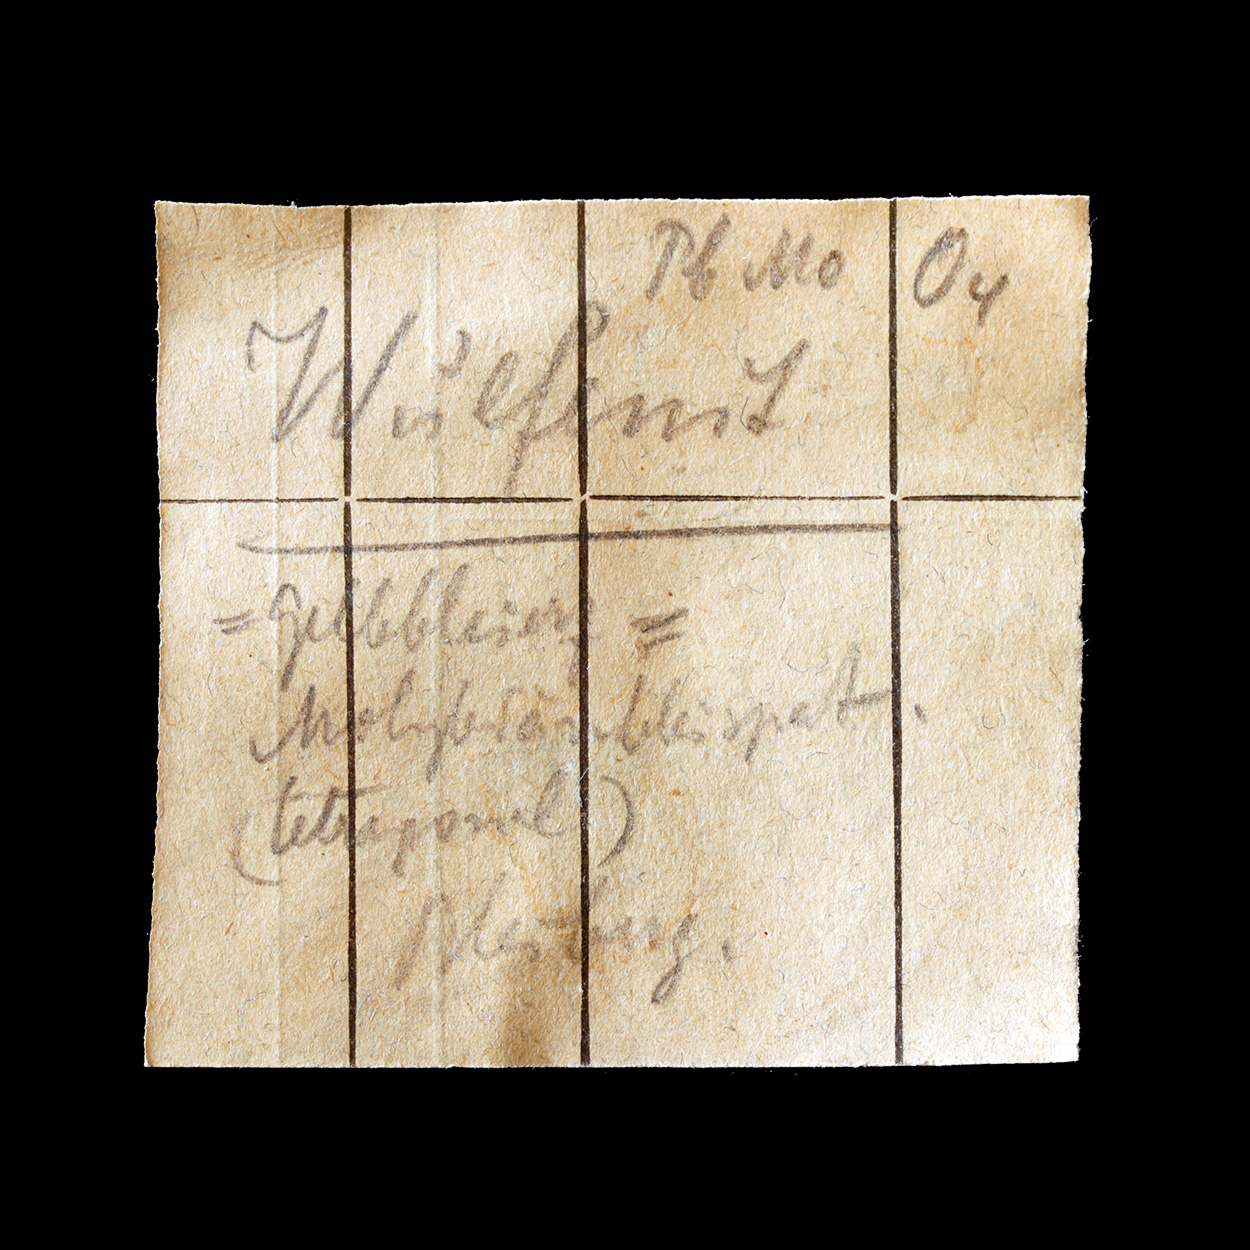 Pb Mo O4
Wulfenit
= Gelbbleierz =
Molybdänbleispat.
(tetragonal)
Bleiberg.